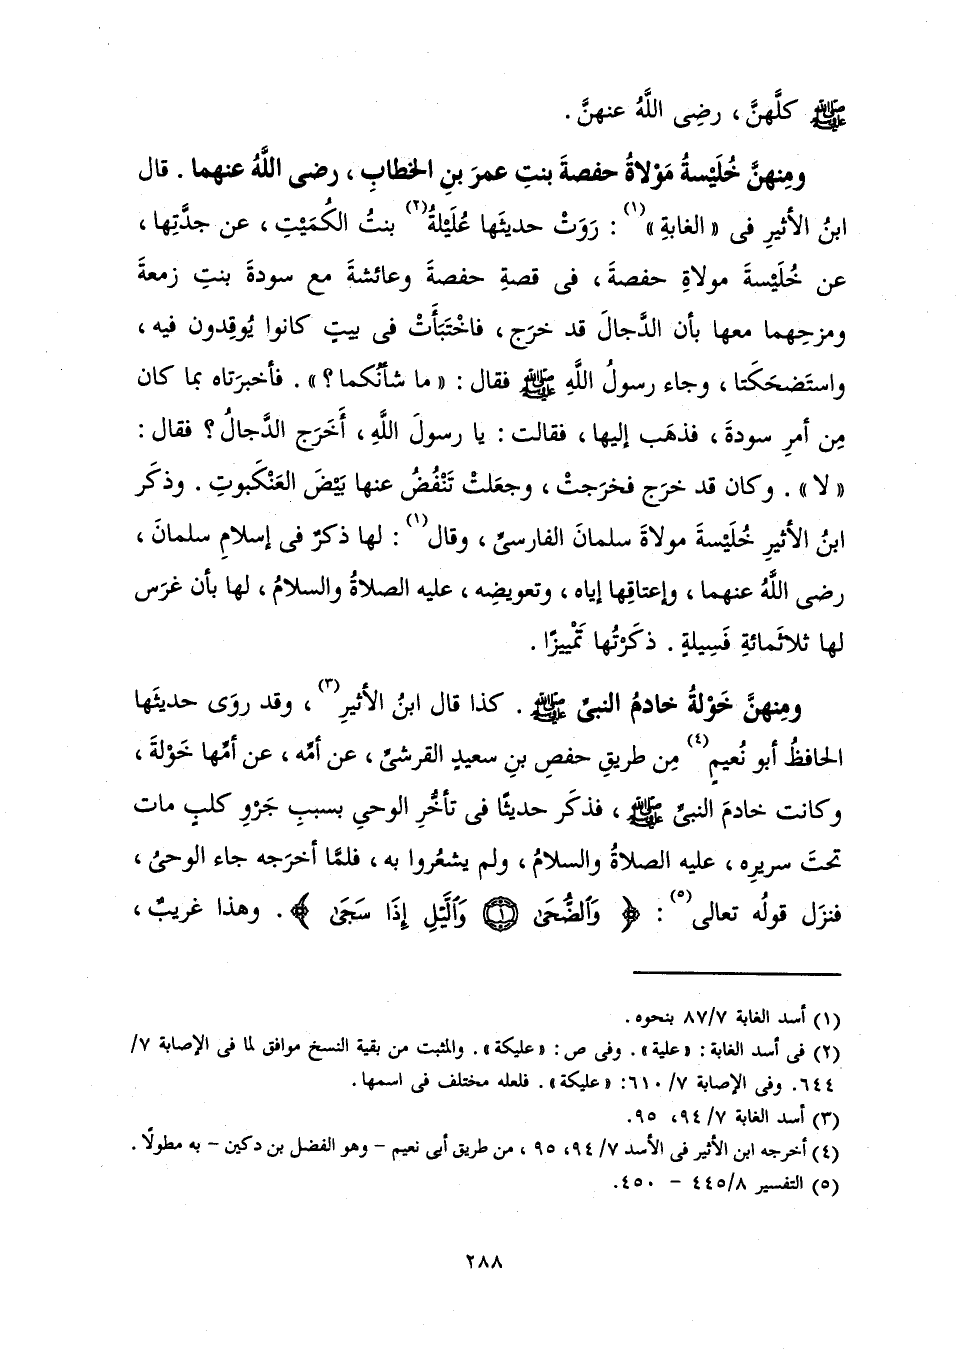 ﷺ كلَّهنَّ ، رضِى اللَّهُ عنهنَّ .
ومِنهنَّ خُلَيْسةُ مَوْلاةُ حفصةَ بنتِ عمرَ بنِ الخطابِ ، رضى اللَّهُ عنهما . قال
ابنُ الأثيرِ فى « الغابةِ »(١) : رَوَتْ حديثَها عُلَيْلةُ(٢) بنتُ الكُمَيْتِ ، عن جدَّتِها ،
عن خُلَيْسةَ مولاةِ حفصةَ ، فى قصةِ حفصةَ وعائشةَ مع سودةَ بنتِ زمعةَ
ومزحِهما معها بأن الدَّجالَ قد خرَج ، فاخْتَبَأَتْ فى بيتٍ كانوا يُوقِدون فيه ،
واستَضحَكَتا ، وجاء رسولُ اللَّهِ ﷺ فقال : « ما شأنُكما ؟ » . فأخبرَتاه بما كان
مِن أمرِ سودةَ ، فذهَب إليها ، فقالت : يا رسولَ اللَّهِ ، أَخَرَج الدَّجالُ ؟ فقال :
« لا » . وكان قد خرَج فخرَجتْ ، وجعَلتْ تَنْفُضُ عنها بَيْضَ العَنْكَبوتِ . وذكَر
ابنُ الأثيرِ خُلَيْسةَ مولاةَ سلمانَ الفارسىِّ ، وقال(١) : لها ذكرٌ فى إسلامِ سلمانَ ،
رضى اللَّهُ عنهما ، وإعتاقِها إياه ، وتعويضِه ، عليه الصلاةُ والسلامُ ، لها بأن غرَس
لها ثلاثَمائةِ فَسِيلةٍ . ذكَرْتُها تَمْييزًا .
ومِنهنَّ خَوْلةُ خادمُ النبىِّ ﷺ . كذا قال ابنُ الأثيرِ(٣) ، وقد روَى حديثَها
الحافظُ أبو نُعيمٍ(٤) مِن طريقِ حفصِ بنِ سعيدٍ القرشىِّ ، عن أمِّه ، عن أمِّها خَوْلةَ ،
وكانت خادمَ النبىِّ ﷺ ، فذكَر حديثًا فى تأخُّرِ الوحيِ بسببِ جَرْوِ كلبٍ مات
تحتَ سريرِه ، عليه الصلاةُ والسلامُ ، ولم يشعُروا به ، فلمَّا أخرَجه جاء الوحىُ ،
فنزَل قولُه تعالى(٥) : ﴿ وَٱلضُّحَىٰ ۝١ وَٱلَّيْلِ إِذَا سَجَىٰ ﴾ . وهذا غريبٌ ،
(١) أسد الغابة ٨٧/٧ بنحوه .
(٢) فى أسد الغابة : « علية » . وفى ص : « عليكة » . والمثبت من بقية النسخ موافق لما فى الإصابة ٧/
٦٤٤. وفى الإصابة ٧/ ٦١٠: « عليكة » . فلعله مختلف فى اسمها .
(٣) أسد الغابة ٧/ ٩٤، ٩٥.
(٤) أخرجه ابن الأثير فى الأسد ٧/ ٩٤، ٩٥ ، من طريق أبى نعيم – وهو الفضل بن دكين – به مطولًا .
(٥) التفسير ٤٤٥/٨ – ٤٥٠.
٢٨٨